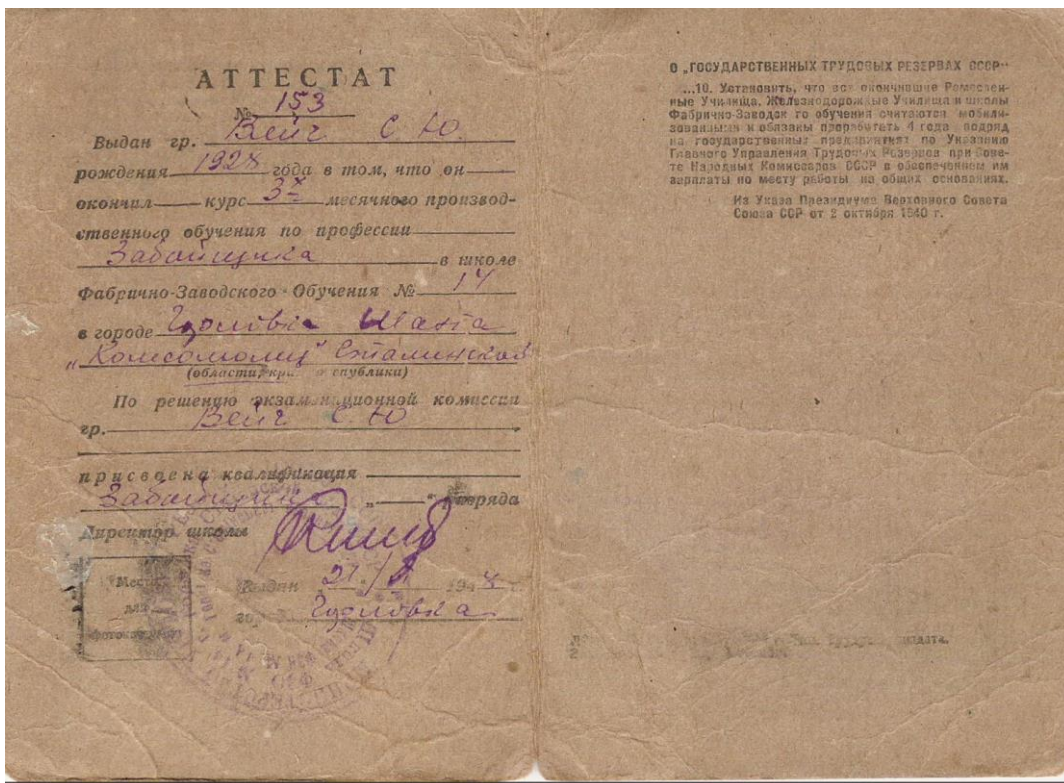 АТТЕСТАТ
№ 153
Выдан гр. Вейг С. Ю.
рождения 1928 года в том, что он
окончил курс 3х месячного производ-
ственного обучения по профессии
Забойщика в школе
Фабрично-Заводского Обучения № 14
в городе Шахта
"Комсомолец" Сталинской
(области, края, республики)
По решению экзаменационной комиссии
гр. Вейг С Ю
присвоена квалификация
Забойщика „ “ разряда
Директор школы
Место
для
фотокарточки
Выдан 21/ 1948 г.
гор.
О „ГОСУДАРСТВЕННЫХ ТРУДОВЫХ РЕЗЕРВАХ СССР“
...10. Установить, что все окончившие Ремеслен-
ные Училища, Железнодорожные Училища и школы
Фабрично-Заводск го обучения считаются мобили-
зованными и обязаны проработать 4 года подряд
на государственных предприятиях по Указанию
Главного Управления Трудовых Резервов при Сове-
те Народных Комиссаров СССР с обеспечением им
зарплаты по месту работы на общих основаниях.
Из Указа Президиума Верховного Совета
Союза ССР от 2 октября 1940 г.